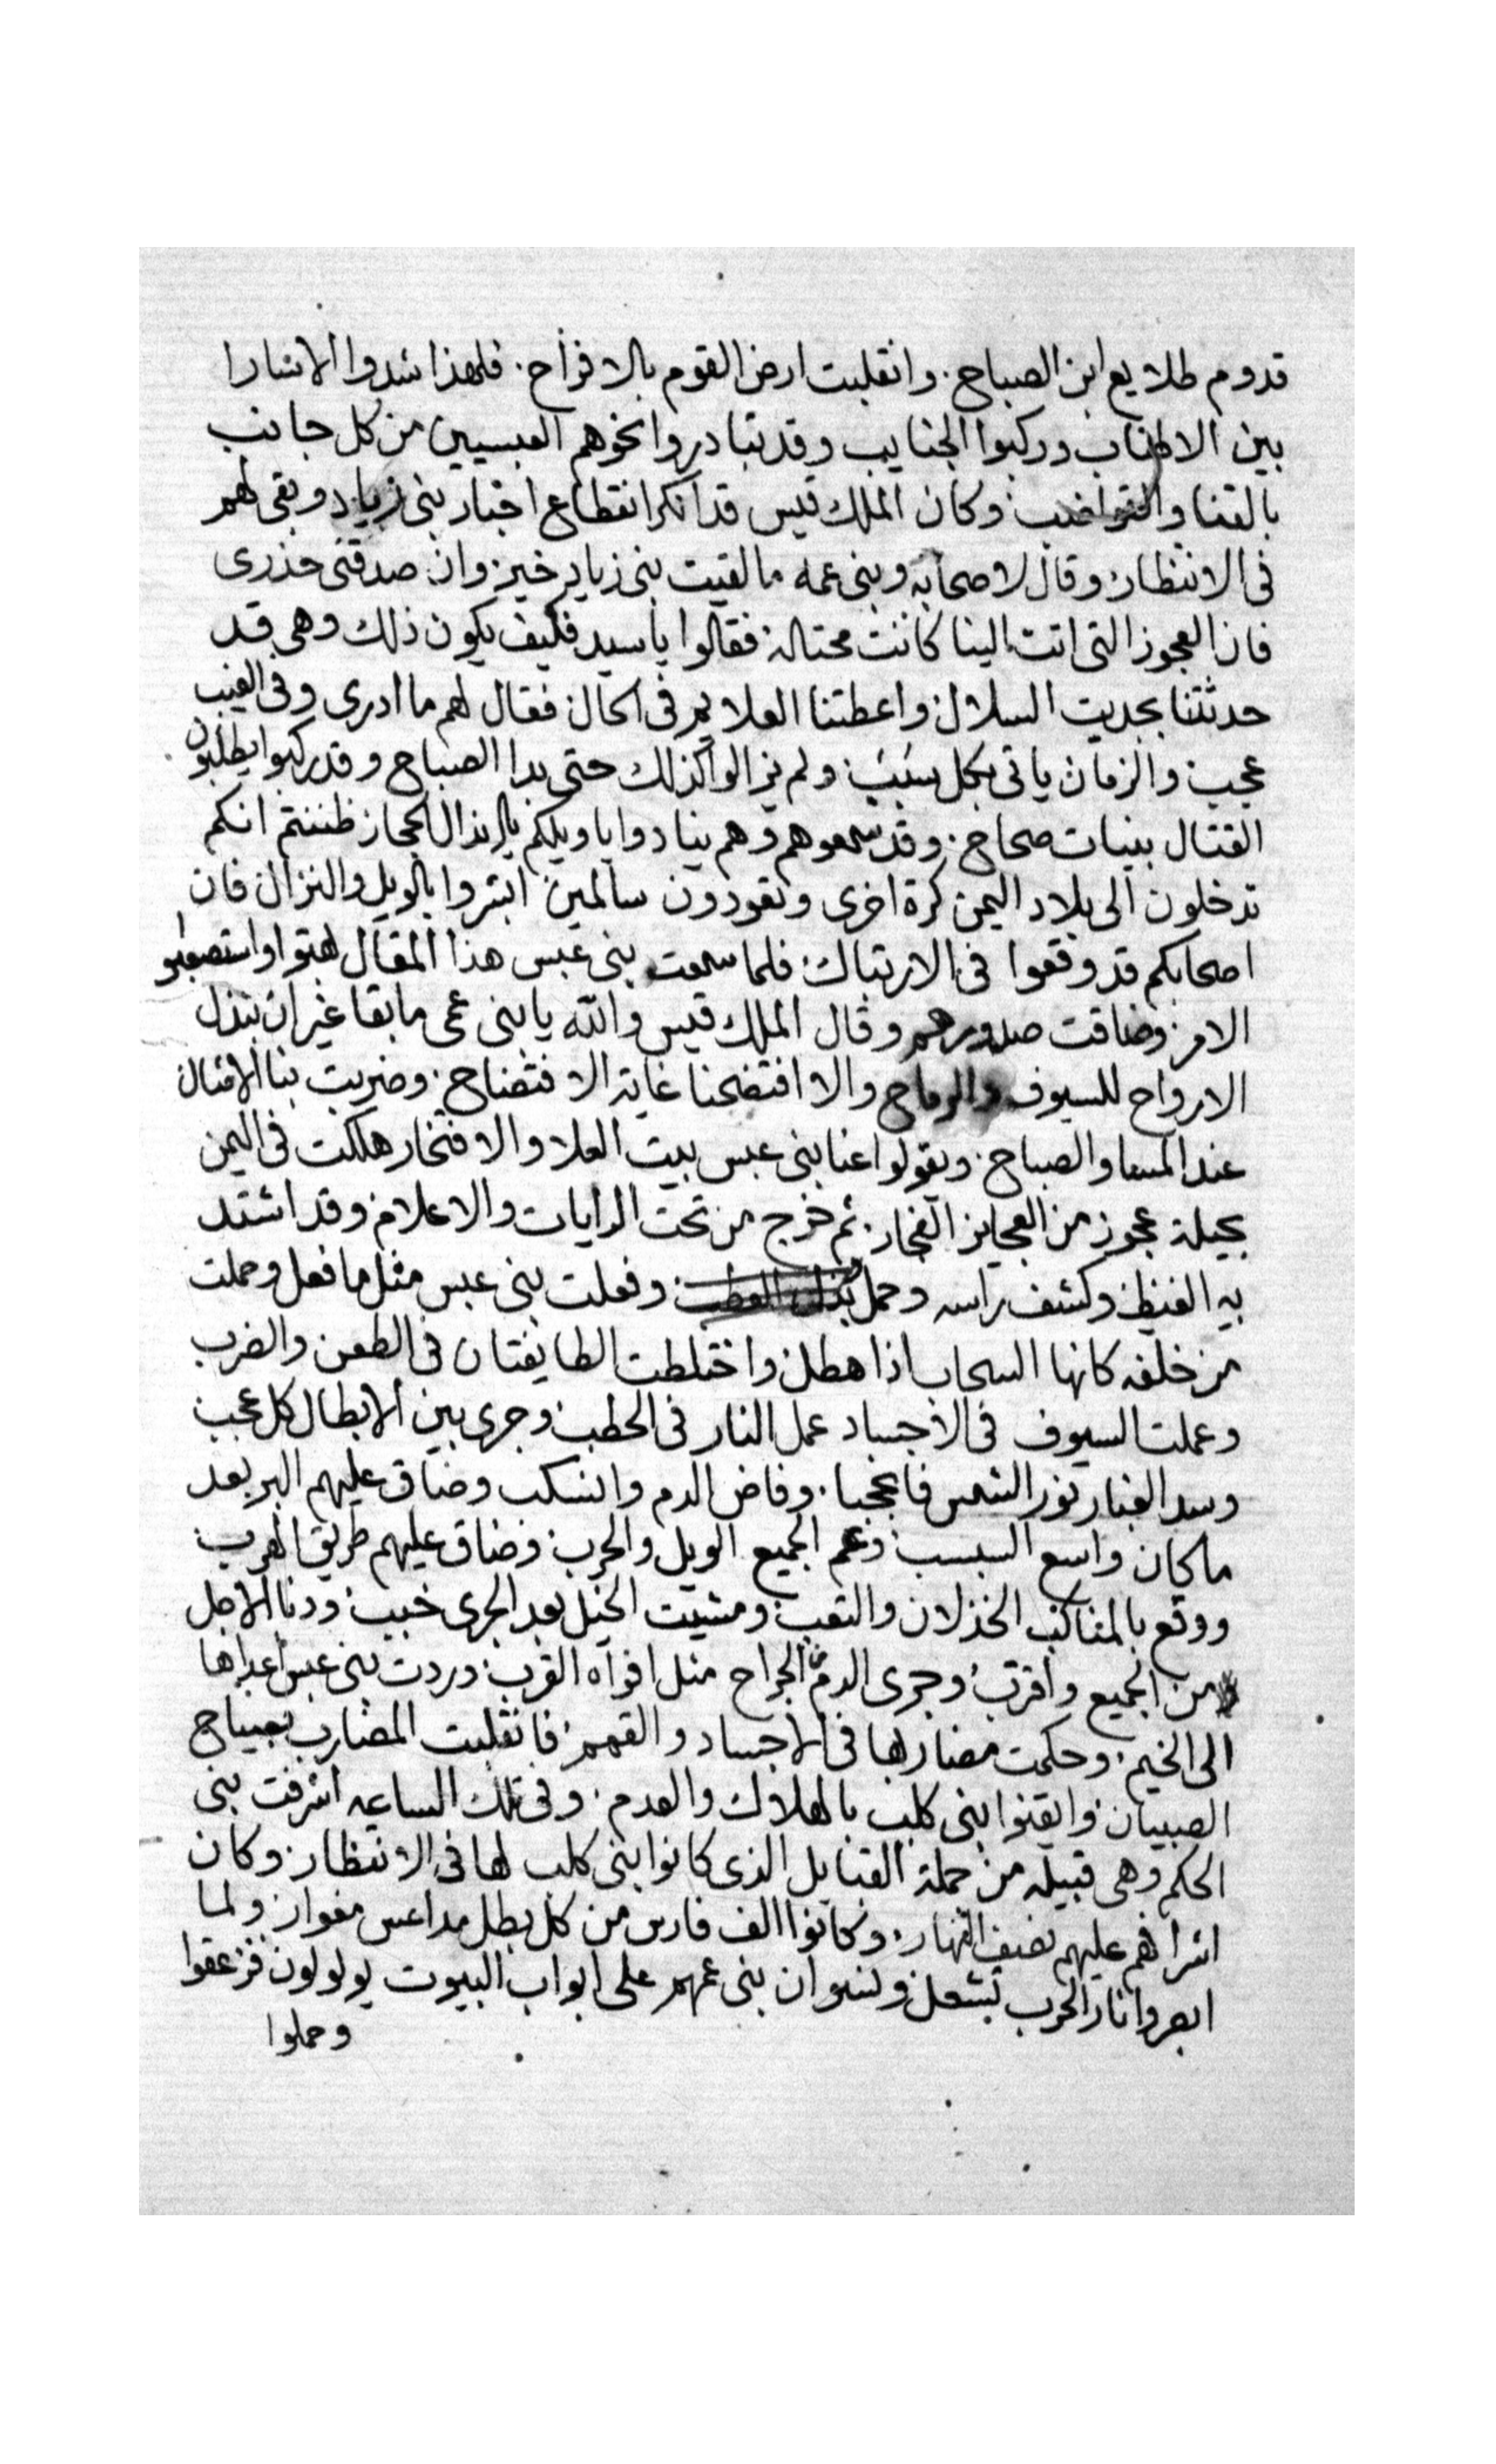 قدوم طلايع ابن الصباح. وانقلبت ارض القوم بالافراح. فلهذا شدوا الاسارا
بين الاطناب وركبوا الجنايب وقد تبادروا نحوهم العبسيين من كل جانب
بالقنا والقواضب وكان الملك قيس قد انكر انقطاع اخبار بني زياد وبقى لهم
فى الانتظار وقال لاصحابه وبنى عمه ما لقيت بنى زياد خير وان صدقنى حذرى
فان العجوز التى اتت الينا كانت محتاله فقالوا يا سيد فكيف يكون ذلك وهى قد
حدثتنا بحديث السلال واعطتنا العلايم فى الحال فقال لهم ما ادرى وفى الغيب
عجب والزمان ياتى بكل سبب ولم يزالوا كذلك حتى بدا الصباح وقد ركبوا يطلبون
القتال بنيات صحاح. وقد سمعوهم وهم ينادوا يا ويلكم يا اندال الحجاز ظننتم انكم
تدخلون الى بلاد اليمن كرة اخرى وتعودون سالمين ابشروا بالويل والنزال فان
اصحابكم قد وقعوا فى الارتباك فلما سمعت بنى عبس هذا المقال بهتوا واستصعبوا
الامر وضاقت صدورهم وقال الملك قيس والله يا بنى عمى ما بقا غير ان نبذل
الارواح للسيوف والرماح والا افتضحنا غاية الافتضاح. وضربت بنا الامثال
عند المسا والصباح. ويقولوا عنا بنى عبس بيت العلا والافتخار هلكت فى اليمن
بحيلة عجوز من العجايز الفجار. ثم خرج من تحت الرايات والاعلام وقد اشتد
به الغيظ وكشف راسه وحمل وفعلت بنى عبس مثل ما فعل وحملت
من خلفه كانها السحاب اذا هطل واختلطت الطايفتان فى الطعن والضرب
وعملت السيوف فى الاجساد عمل النار فى الحطب وجرى بين الابطال كل عجب
وسد الغبار نور الشمس فاحجبا. وفاض الدم وانسكب وضاق عليهم البر بعد
ما كان واسع السبسب وعم الجميع الويل والحرب وضاق عليهم طريق الهرب
ووقع بالمناكب الخذلان والتعب ومشيت الخيل بعد الجرى خبب ودنا الاجل
من الجميع واقترب وجرى الدم من الجراح مثل افواه القرب وردت بنى عبس اعداها
الى الخيم. وحكمت مضاربها فى الاجساد والقمم فانقلبت المضارب بصياح
الصبيان وايقنوا بنى كلب بالهلاك والعدم. وفى تلك الساعه اشرفت بنى
الحكم وهى قبيله من جملة القبايل الذى كانوا بنى كلب لها فى الانتظار. وكان
اشرافهم عليهم نصف النهار. وكانوا الف فارس من كل بطل مداعس مغوار ولما
ابصروا نار الحرب تشعل ونسوان بنى عمهم على ابواب البيوت يولولون فزعقوا
وحملوا